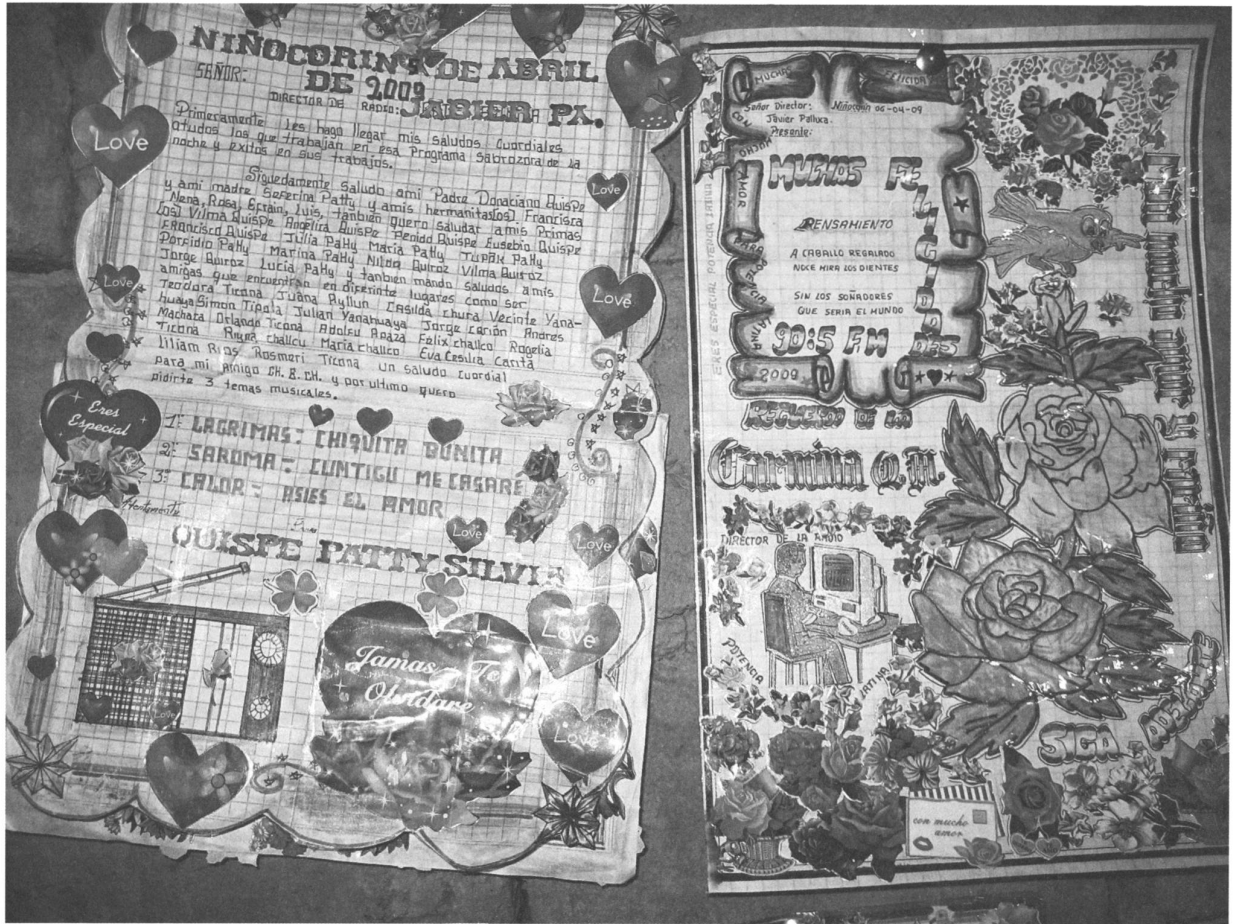 NIÑOCORIN 9 DE ABRIL
DE 2009
SEÑOR:
DIRECTOR DE RADIO: JABIER PA.
Primeramente les hago llegar mis saludos cuordiales
atudos los que trabajan en esa Programa sabrozona de la
noche y exitos en sus trabajos.
Siguedamente saludo ami Padre Donaciano Quispe
y ami madre Seferina Patty y amis hermanitas(os) Francisca
Nena, Rosa, Efrain, Luis, tanbien quero saludar amis Primas
(os) Vilma Quispe Angelira Quispe Benido Quispe Eusebio Quispe
Francisco Quispe Julia Patty Maria Patty Tupak Patty
Porfidio Patty Marina Patty Nilda Quiroz Vilma Quiroz
Jorge Quiroz Lucia Patty y tanbien mando saludos amis
amigas que encuentran en diferinte lugares como ser
Teodora Ticona Juana Ayllun Casilda chura Vecinte Yana-
huaya Simon Tipola Julian Yanahuaya Jorge carión Andres
Machaca Orlando Ticona Adolfu Apaza Felix challco Rogelia
Ticona Reyna challcu Maria challco Eva Cesilia Canta
liliam Rios Rosmeri Ticona un saludo cuordial
para mi Amigo CH. B. CH. y por ultimo quero
pidirte 3 temas musicales.
1º LAGRIMAS- CHIQUITA BUNITA
2º SAROMA - CUNTIGU ME CASARE
3º CALOR - ASIES EL AMOR
Atentamente
QUISPE PATTY SILVIA
Love
Love
Love
Love
Eres
Especial
Love
Love
Love
Love
Love
Jamas Te
Olvidare
MUCHAS FELICIDA
Señor Director: Niñocorin 06-04-09
Javier Pallxa.
Presente:
MUCHAS FELICIDADES
CON MUCHO AMOR PARA POTENCIA LATINA
ERES ESPECIAL POTENCIA LATINA
PENSAMIENTO
A CABALLO REGALADO
NOCE MIRA LOS DIENTES
SIN LOS SOÑADORES
QUE SERIA EL MUNDO
90:5 FM
2009
RECUERDO DE LA
Carmina Q.H.
DIRECTOR DE LA RADIO
POTENCIA
LATINA
SIGA ADELANTE
con mucho
amor